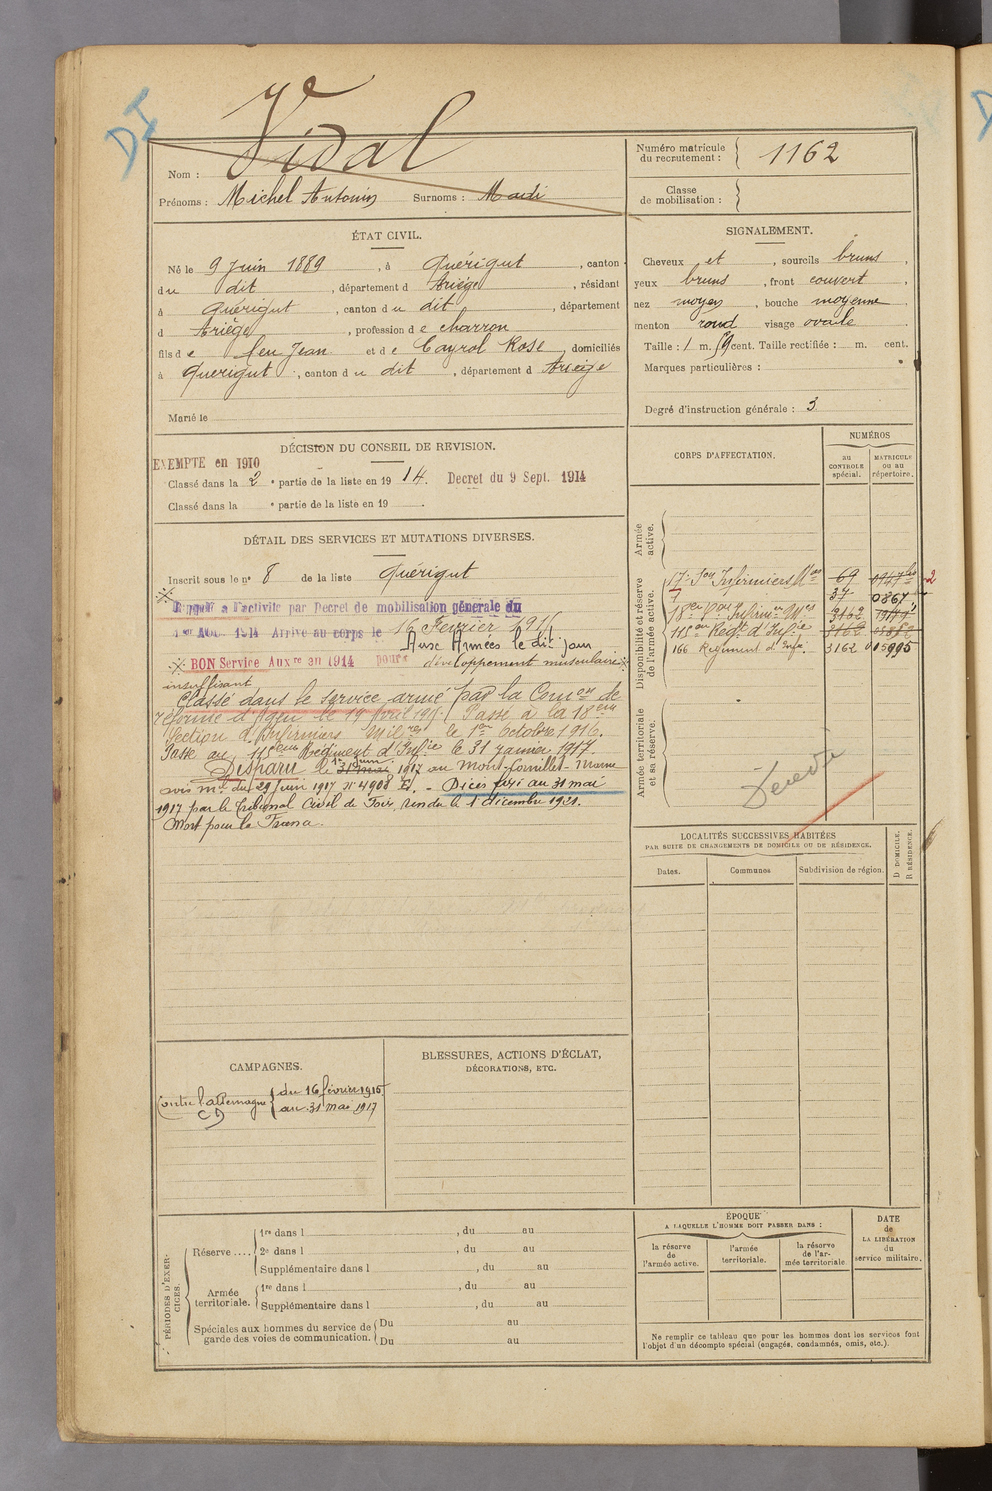 DI
Vidal
Nom :
Prénoms : Michel Antonin Surnoms : Madi
Numéro matricule du recrutement : 1162
Classe de mobilisation :
ÉTAT CIVIL.
Né le 9 Juin 1889, à Quérigut, canton
du dit, département d Ariége, résidant
à Quérigut, canton du dit, département
d Ariège, profession de charron
fils de feu Jean et de Cayrol Rose, domiciliés
à Quérigut, canton du dit, département d Ariège
Marié le
SIGNALEMENT.
Cheveux et, sourcils bruns,
yeux bruns, front couvert,
nez moyen, bouche moyenne
menton rond visage ovale.
Taille : 1 m. 59 cent. Taille rectifiée : m. cent.
Marques particulières :
Degré d'instruction générale : 3
DÉCISION DU CONSEIL DE REVISION.
EXEMPTE en 1910
Classé dans la 2e partie de la liste en 1914. Decret du 9 Sept. 1914
Classé dans la e partie de la liste en 19 .
DÉTAIL DES SERVICES ET MUTATIONS DIVERSES.
Inscrit sous le no 8 de la liste Quérigut
Rappelé a l'activité par Decret de mobilisation génerale du
1er Aout 1914 Arrivé au corps le 16 Février 1915
Aux Armées le dit jour
BON Service Auxre en 1914 pour développement musculaire
insuffisant
Classé dans le service armé par la Comon de
réforme d'Agen le 19 Avril 191 . Passé à la 18eme
Section d'Infirmiers Milres le 1er Octobre 1916.
Passé au 115eme Régiment d'Infie le 31 janvier 1917.
Disparu le 31 mai 1er juin 1917 au Mont-Cornillet - Marne
avis ml du 29 Juin 1917 n° 4908 . - Décès fixé au 31 mai
1917 par le Tribunal Civil de Foix, rendu le 1 décembre 1921.
Mort pour la France.
CORPS D'AFFECTATION.
NUMÉROS
au CONTROLE spécial.
MATRICULE ou au répertoire.
Armée active.
Disponibilité et réserve de l'armée active.
17e Son Infirmiers Mres 69 0947
37 0867
18e Son Infirmiers Mres 3162
115e Regt d'Infie 3162
166 Regiment d'Infe. 3162 015995
Armée territoriale et sa réserve.
Décédé
LOCALITÉS SUCCESSIVES HABITÉES
PAR SUITE DE CHANGEMENTS DE DOMICILE OU DE RÉSIDENCE.
Dates.
Communes
Subdivision de région.
D. DOMICILE.
R. RÉSIDENCE.
CAMPAGNES.
Contre l'allemagne du 16 février 1915
CD au 31 mai 1917
BLESSURES, ACTIONS D'ÉCLAT,
DÉCORATIONS, ETC.
PÉRIODES D'EXERCICES.
Réserve .... 1re dans l , du au
2e dans l , du au
Supplémentaire dans l , du au
Armée territoriale. 1re dans l , du au
Supplémentaire dans l , du au
Spéciales aux hommes du service de garde des voies de communication. Du au
Du au
ÉPOQUE
A LAQUELLE L'HOMME DOIT PASSER DANS :
la réserve de l'armée active.
l'armée territoriale.
la réserve de l'armée territoriale.
DATE de LA LIBÉRATION du service militaire.
Ne remplir ce tableau que pour les hommes dont les services font
l'objet d'un décompte spécial (engagés, condamnés, omis, etc.).